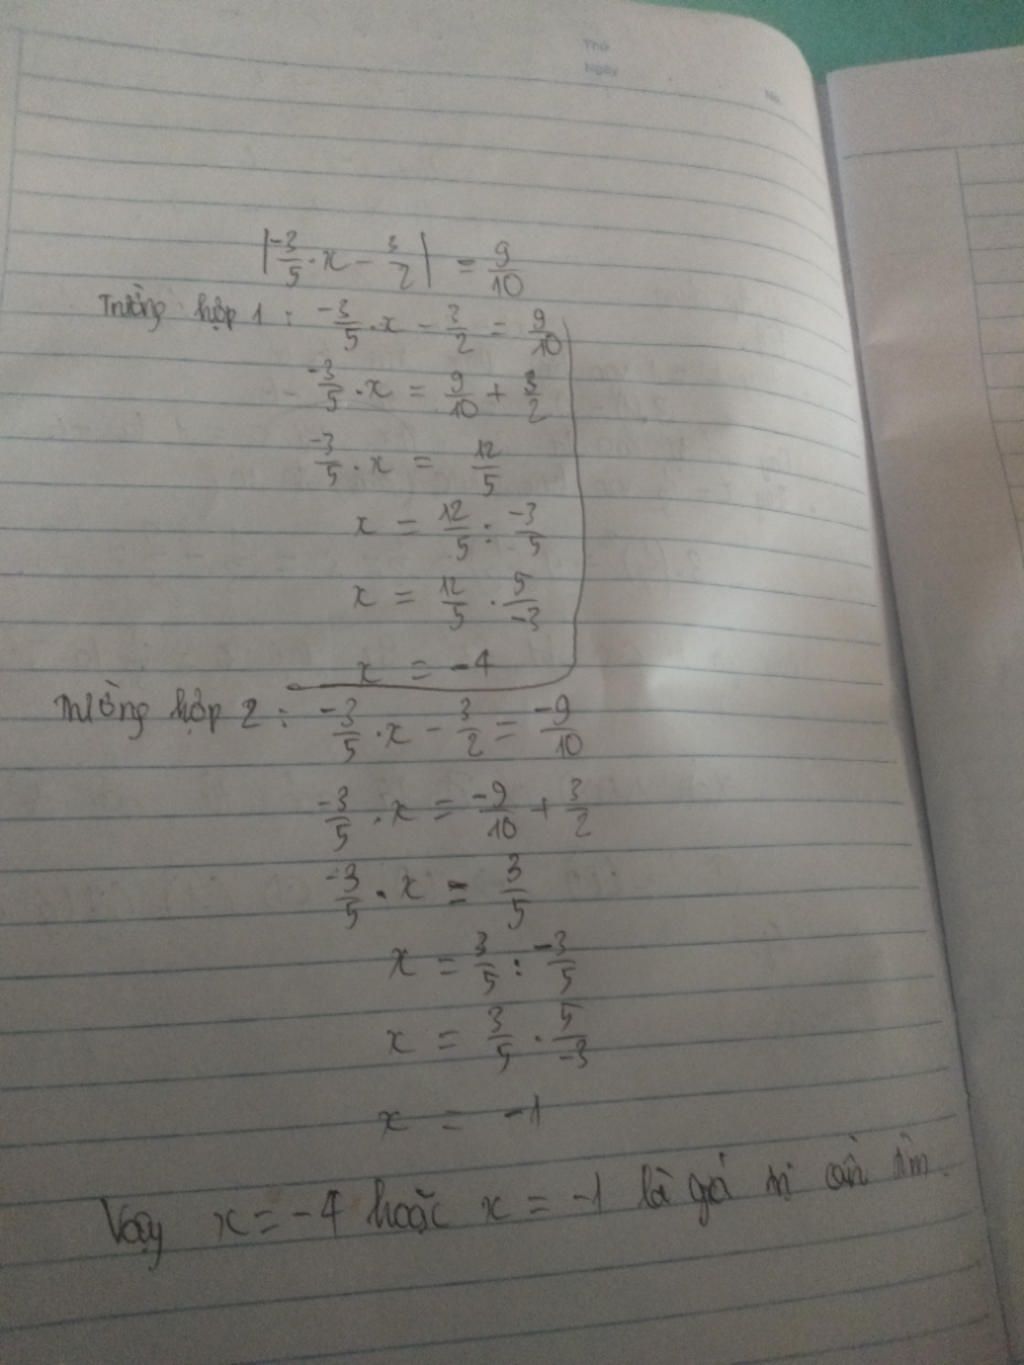 Thứ
Ngày
No.
|-3/5 . x - 3/2| = 9/10
Trường hợp 1 : -3/5 . x - 3/2 = 9/10
-3/5 . x = 9/10 + 3/2
-3/5 . x = 12/5
x = 12/5 : -3/5
x = 12/5 . 5/-3
x = -4
Trường hợp 2 : -3/5 . x - 3/2 = -9/10
-3/5 . x = -9/10 + 3/2
-3/5 . x = 3/5
x = 3/5 : -3/5
x = 3/5 . 5/-3
x = -1
Vậy x = -4 hoặc x = -1 là giá trị cần tìm.